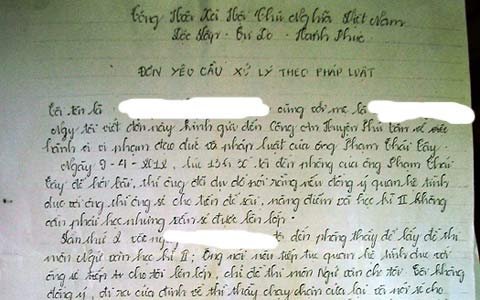 Cộng Hòa Xã Hội Chủ Nghĩa Việt Nam
Độc Lập - Tự Do - Hạnh Phúc
ĐƠN YÊU CẦU XỬ LÝ THEO PHÁP LUẬT
Tôi tên là cùng với mẹ là
Nay tôi viết đơn này kính gửi đến Công An Huyện Phú Tân về việc
hành vi vi phạm đạo đức và pháp luật của ông Phạm Thái
Ngày 9-4-2012, lúc tôi đến phòng của ông Phạm Thái
để hỏi bài, thì ông đã dụ dỗ nói rằng nếu đồng ý quan hệ tình
dục với ông thì ông sẽ cho tiền để xài, nâng điểm và học kì II không
cần phải học nhưng vẫn sẽ được lên lớp.
Lần thứ 2 vào ngày tôi đến phòng thầy để lấy đề thi
môn Ngữ văn học kì II; Ông nói nếu tiếp tục quan hệ tình dục với
ông sẽ tiếp tục cho tôi lên lớp, chỉ đề thi môn Ngữ văn cho tôi. Tôi không
đồng ý, đi ra cửa định về thì thầy chạy chặn cửa lại và nói sẽ cho